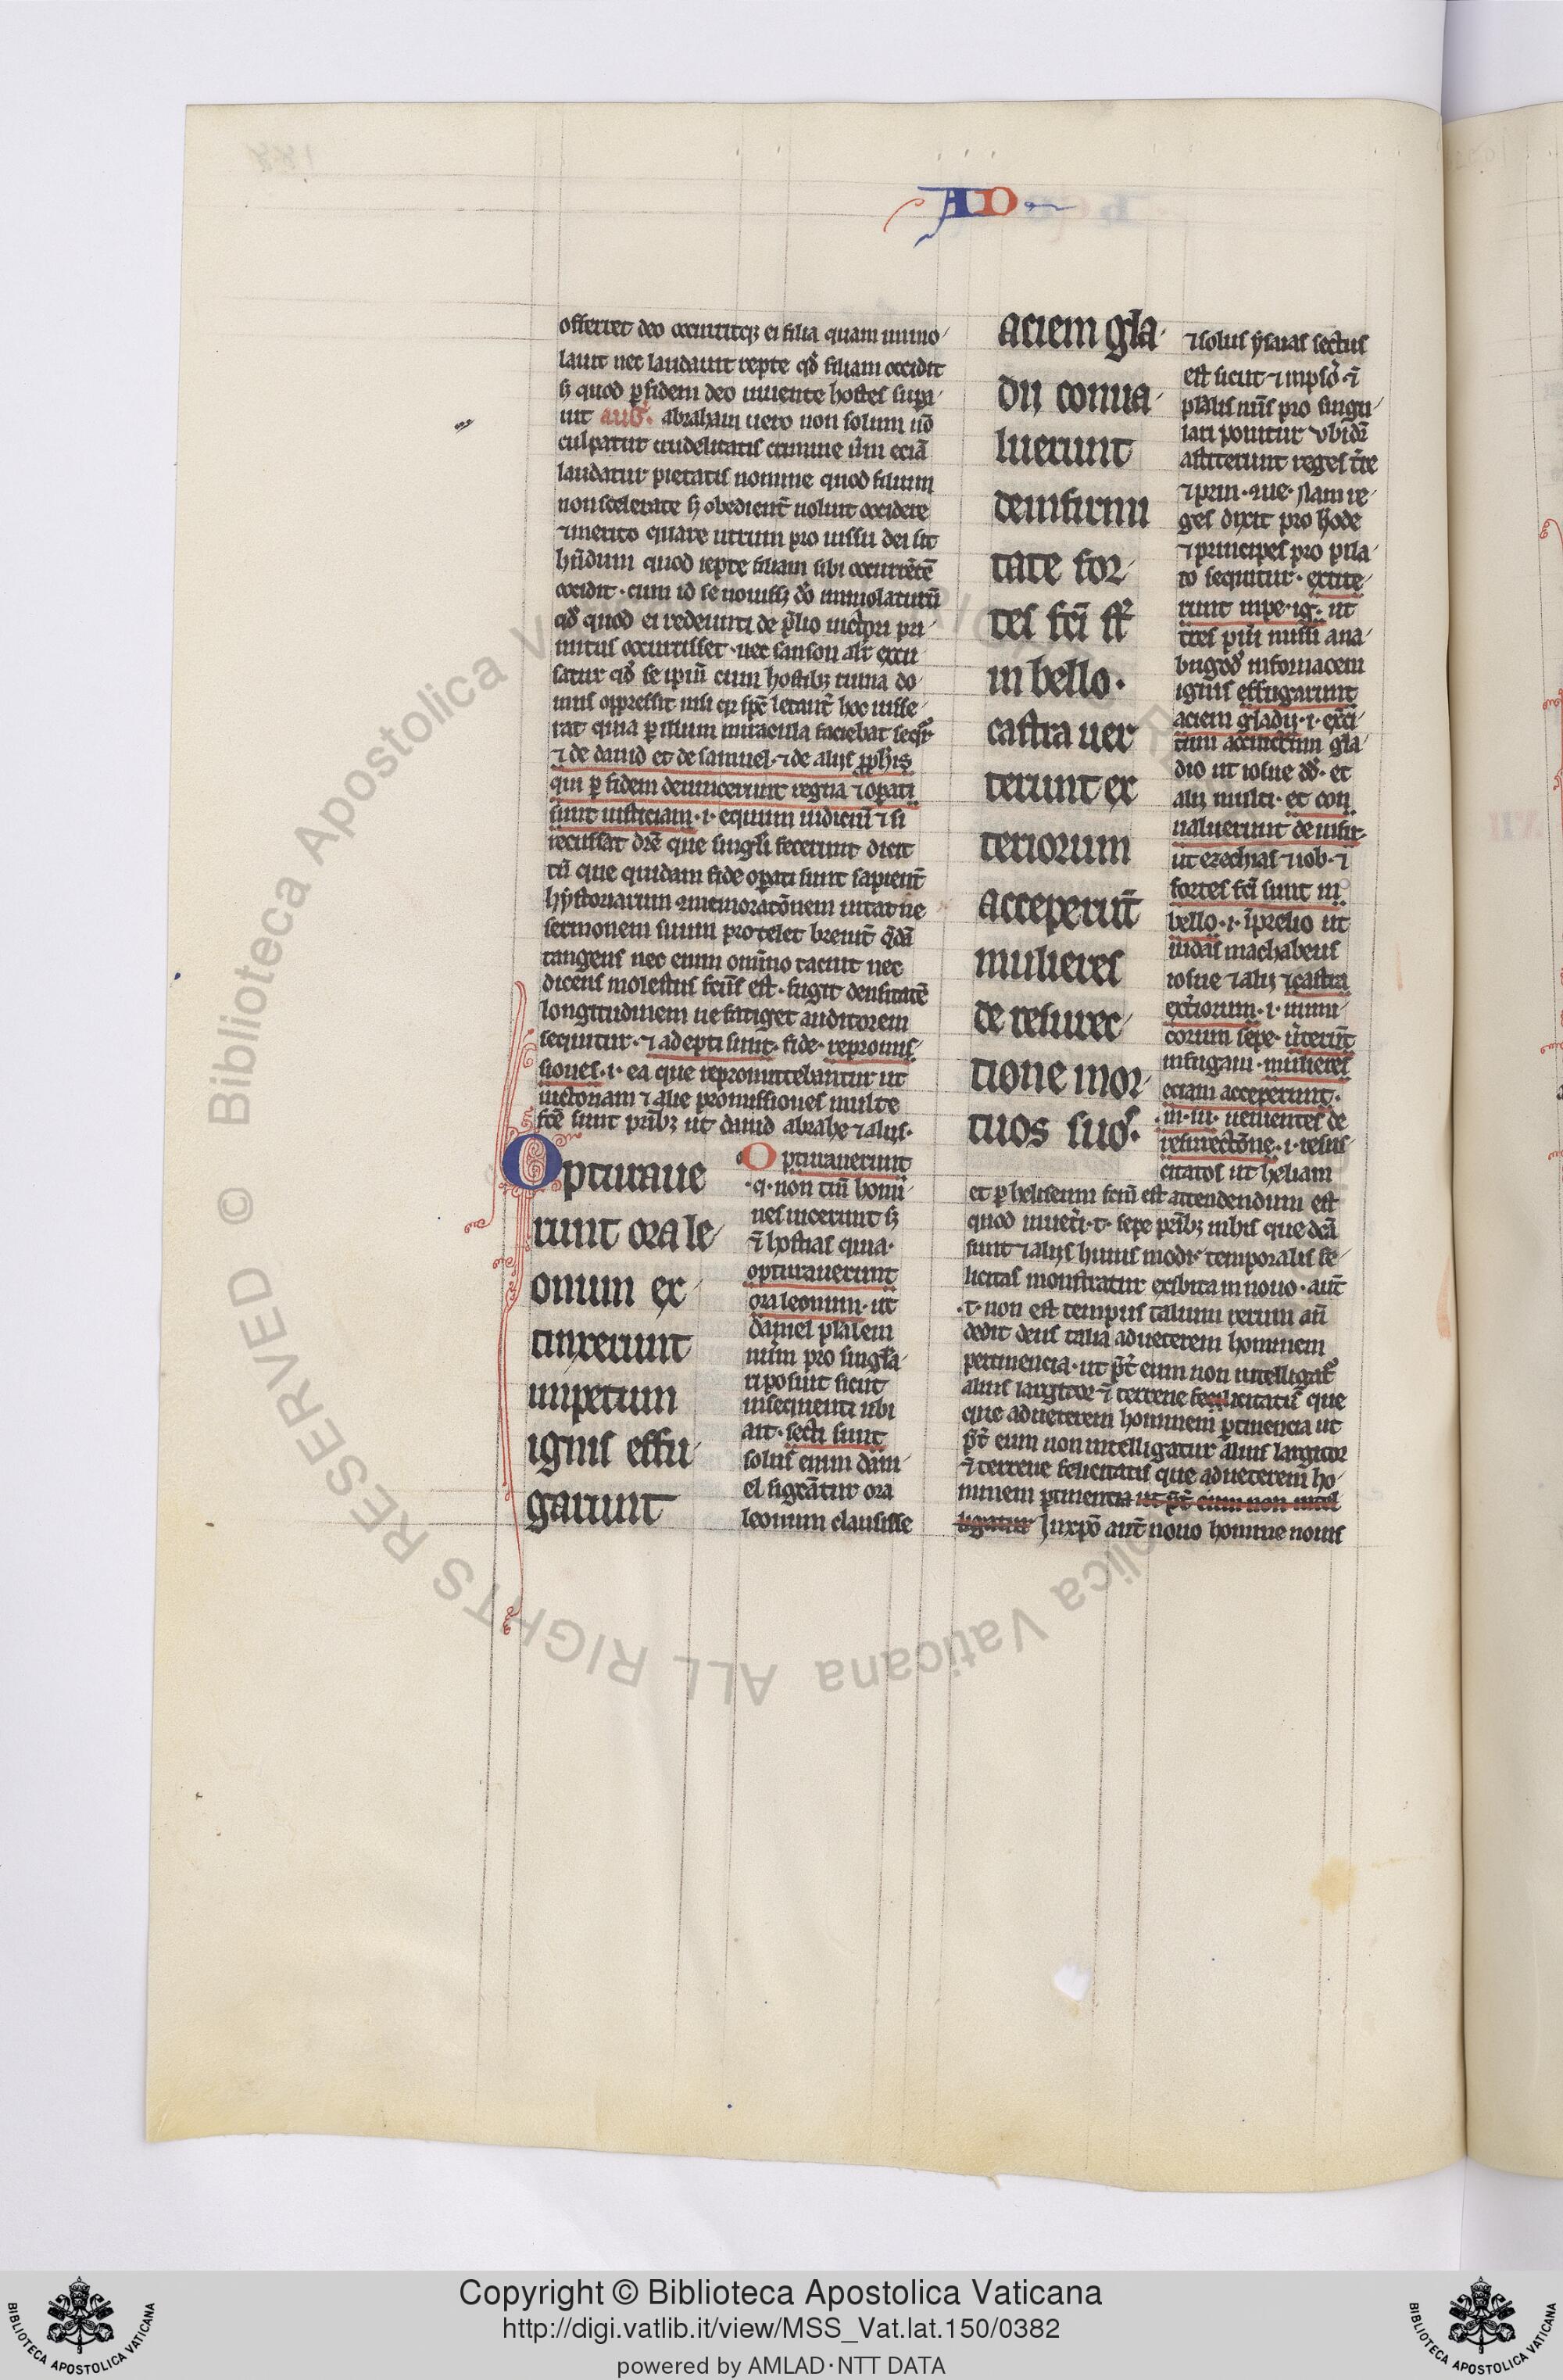 AD
offerret deo occurritq; ei filia quam immo
lauit nec laudauit iepte qd' filiam occidit
s; quod p fidem deo iuuente hostes supa
uit aug'. abraham uero non solum nō
culpatur crudelitatis crimine uim eciā
laudatur pietatis nomine quod filium
non scelerate s; obedient̄ uoluit occidere
⁊ merito quare utrum pro iussu dei sit
hn̄dum quod iepte filiam sibi occurrētē
occidit . cum id se nouiss; dō immolaturū
qd' quod ei redeunti de p̄lio uictori pri
mitus occurrisset . nec sanson alr̄ excu
satur qd' se ipm̄ cum hostib; ruina do
mus oppressit nisi qr sps̄ letant̄ hoc iusse
rat quia p illum miracula faciebat seqr̄
⁊ de dauid et de samuel . ⁊ de alijs pphis
qui p fidem deuicerunt regna ⁊ opati
sunt iusticiam . i . equum iudiciū ⁊ si
recussat dr̄e que singli fecerunt dicit
tn̄ que quidam fide opati sunt sapient̄
hystoriarum ꝯmemoratōnem uitat ne
sermonem suum protelet breuit̄ qdā
tangens nec enim omīno tacuit nec
dicens molestus fcūs est . fugit densitatē
longitudinem ne fatiget auditorem
sequitur . ⁊ adepti sunt . fide . repromis
siones . i . ea que repromittebantur ut
uictoriam ⁊ alie promissiones multe
fcē sunt prib; ut dauid abrahe ⁊ alijs .
Opturaue
runt ora le
onum ex
tinxerunt
impetum
ignis effu
garunt
Opturauerunt
. q . non tm̄ homi
nes uicerunt s;
⁊ hostias quia .
opturauerunt
ora leonum . ut
daniel pl̄alem
num̄ pro singla
ri posuit sicut
in sequenti ubi
ait . secti sunt
solus enim dani
el figrātur ora
leonum clausisse
aciem gla
dij conua
luerunt
de infirmi
tate for
tes fcī st̄
in bello .
castra uer
terunt ex
teriorum
acceperūt
mulieres
de resurec
tione mor
tuos suos .
⁊ solus ysaias sectus
est sicut ⁊ in psō ⁊
pl̄alis nūs pro singu
lari ponitur vbi dr̄
astiterunt reges tr̄e
⁊ prin . ꝯue . nam re
ges dixit pro hode
⁊ principes pro pila
to sequitur . extite
runt inpe . ig . ut
tres pūi missi a na
bugod' in fornacem
ignis effugarunt
aciem gladij . i . exc̄i
tum accinctum gla
dio ut iosue dd' . et
alij multi . et con
ualuerunt de infir .
ut ezechias ⁊ iob . ⁊
fortes fcī sunt in
bello . i . ī prelio ut
iudas machabeus
iosue ⁊ alij ⁊ castra
ext̄iorum . i . inimi
corum sepe . ūterūt
in fugam . mulieres
eciam acceperunt .
. m . su . uenientes de
resurectōne . i . resus
citatos ut heliam
et p heliseum fcm̄ est attendendum est
quod in uet̄i . t . sepe prib; nibus que dcā
sunt ⁊ alijs huius modi . temporalis fe
licitas monstratur exibita in nouo . aut̄
. t . non est tempus talium rerum an̄
dedit deus talia ad ueterem hominem
pertinencia . ut p̄t̄ eum non intelligat̄
alius largitor ⁊ terrene fecilicitatis que
que ad ueterem hominem ptinencia ut
p̄t̄ eum non intelligatur alius largitor
⁊ terrene felicitatis que ad ueterem ho
minem ptinencia ut p̄t̄ eum non intel
ligatur In xpō aut̄ nouo homine nouis
Copyright © Biblioteca Apostolica Vaticana
http://digi.vatlib.it/view/MSS_Vat.lat.150/0382
powered by AMLAD·NTT DATA
BIBLIOTECA APOSTOLICA VATICANA
BIBLIOTECA APOSTOLICA VATICANA
© Biblioteca Apostolica Vaticana ALL RIGHTS RESERVED